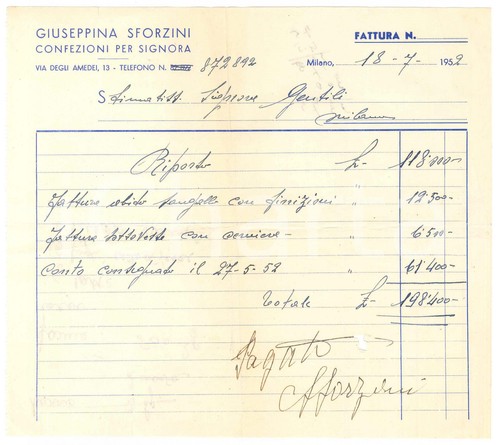 GIUSEPPINA SFORZINI
CONFEZIONI PER SIGNORA
VIA DEGLI AMEDEI, 13 - TELEFONO N. 872892
FATTURA N.
Milano, 18-7-1952
Gentili
Milano
Riporto £ 118'000-
fattura abito sangallo con finizioni " 12'500-
fattura sottoveste con cerniere- " 6'500-
Conto consegnato il 27-5-52 " 61'400-
Totale £ 198'400-
Pagato
Sforzini